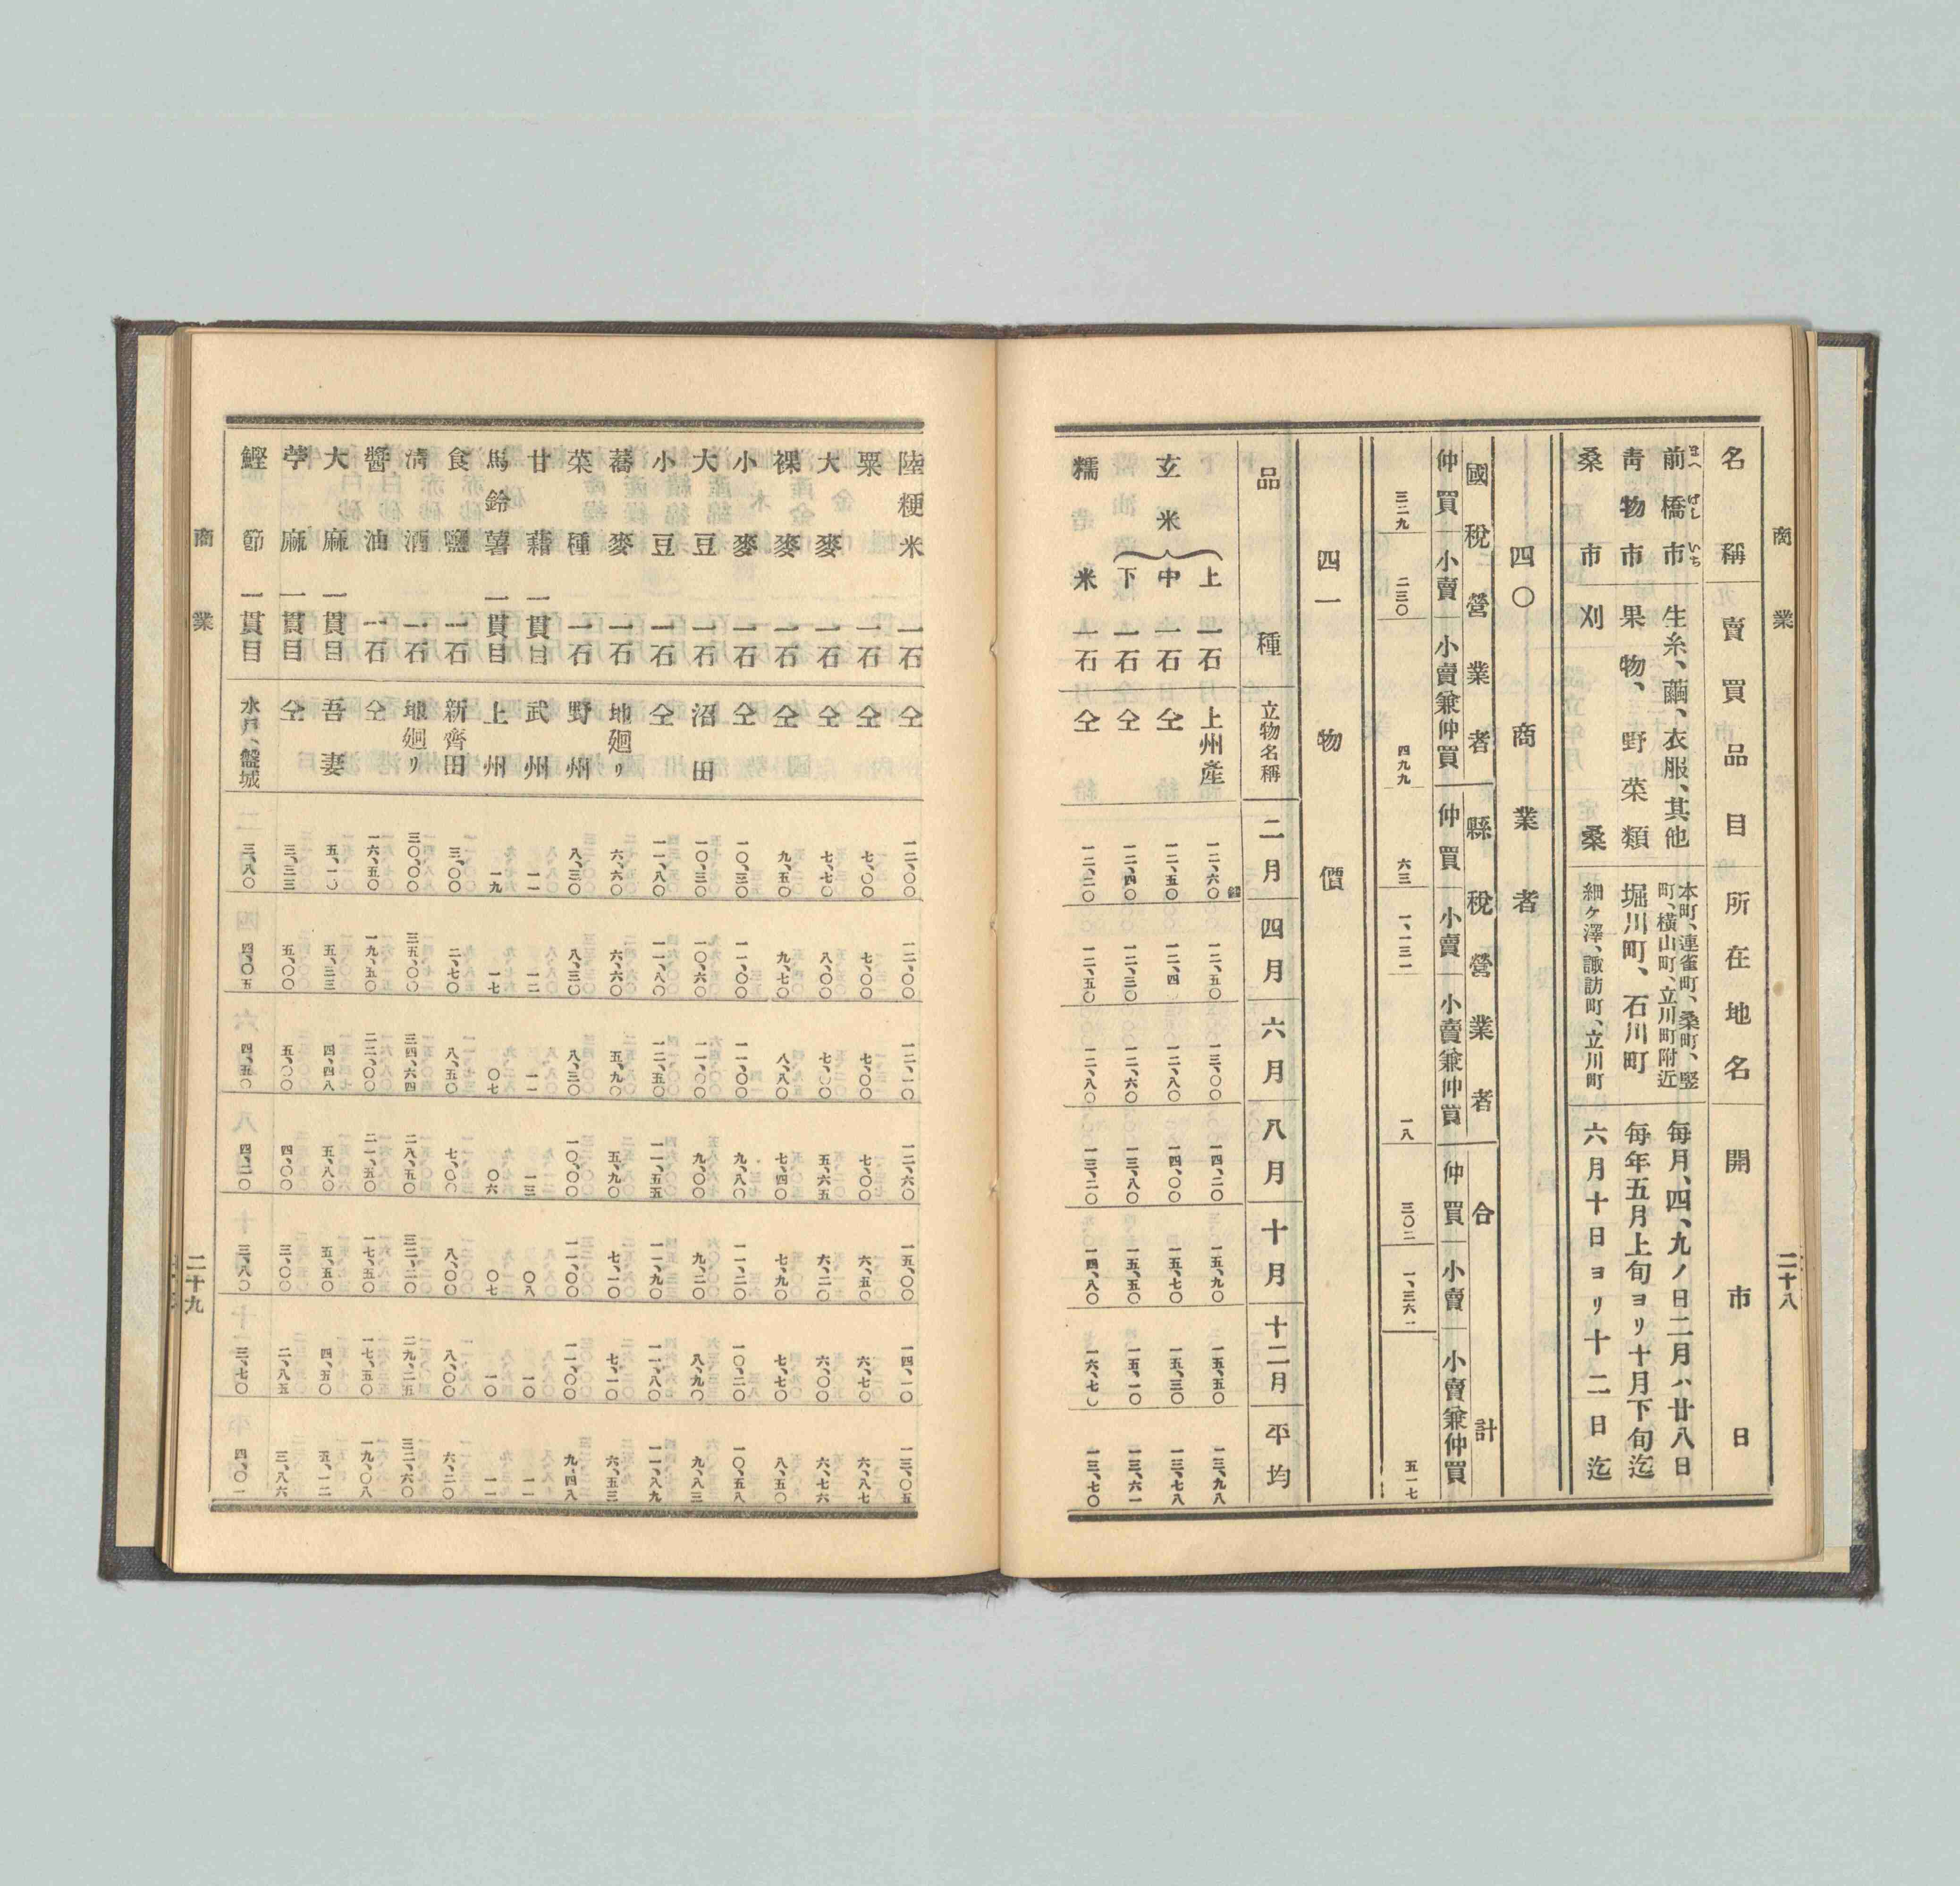 商業
二十八
名稱 賣買品目 所在地名 開市日
前橋市 生糸、繭、衣服、其他 本町、連雀町、桑町、竪町、橫山町、立川町附近 每月、四、九ノ日二月ハ廿八日
まへばしいち
靑物市 果物、野菜類 堀川町、石川町 每年五月上旬ヨリ十月下旬迄
桑市 刈桑 細ケ澤、諏訪町、立川町 六月十日ヨリ十二日迄
四〇 商業者
國稅營業者 縣稅營業者 合計
仲買 小賣 小賣兼仲買 仲買 小賣 小賣兼仲買 仲買 小賣 小賣兼仲買
三二九 二三〇 四九九 六三 一、一三一 一八 三〇二 一、三六一 五一七
四一 物價
品種 立物名稱 二月 四月 六月 八月 十月 十二月 平均
玄米 上 一石 上州產 一二、六〇 一二、五〇 一三、〇〇 一四、二〇 一五、九〇 一五、五〇 一三、九八
中 一石 仝 一二、五〇 一二、四 一二、八〇 一四、〇〇 一五、七〇 一五、三〇 一三、七八
下 一石 仝 一二、四〇 一二、三〇 一二、六〇 一三、八〇 一五、五〇 一五、一〇 一三、六一
糯米 一石 仝 一二、二〇 一二、五〇 一二、八〇 一三、二〇 一四、八〇 一六、七〇 一三、七〇
陸粳米 一石 仝 一二、〇〇 一二、〇〇 一二、一〇 一二、六〇 一五、〇〇 一四、一〇 一三、〇五
粟 一石 仝 七、〇〇 七、〇〇 七、〇〇 七、〇〇 六、五〇 六、七〇 六、八七
大麥 一石 仝 七、七〇 八、〇〇 七、〇〇 五、六五 六、二〇 六、〇〇 六、七六
裸麥 一石 仝 九、五〇 九、七〇 八、八〇 七、四〇 七、九〇 七、七〇 八、五〇
小麥 一石 仝 一〇、三〇 一一、〇〇 一一、〇〇 九、八〇 一一、二〇 一〇、二〇 一〇、五八
大豆 一石 沼田 一〇、三〇 一〇、六〇 一一、〇〇 九、〇〇 九、二〇 八、九〇 九、八三
小豆 一石 仝 一一、八〇 一一、八〇 一二、五〇 一一、五五 一一、九〇 一一、八〇 一一、八九
蕎麥 一石 地廻リ 六、六〇 六、六〇 五、九〇 五、九〇 七、一〇 七、一〇 六、五三
菜種 一石 野州 八、三〇 八、三〇 八、三〇 一〇、〇〇 一一、〇〇 一一、〇〇 九、四八
甘藷 一貫目 武州 一一 一二 一一 一三 〇八 一〇 一一
馬鈴薯 一貫目 上州 一九 一七 〇七 〇六 〇七 一〇 一一
食鹽 一石 新齊田 三、〇〇 二、七〇 八、五〇 七、〇〇 八、〇〇 八、〇〇 六、二〇
淸酒 一石 地廻リ 三〇、〇〇 三五、〇〇 三四、六四 二八、五〇 三二、二〇 二九、二五 三二、六〇
醬油 一石 仝 一六、五〇 一九、五〇 二二、〇〇 二一、五〇 一七、五〇 一七、五〇 一九、〇八
大麻 一貫目 吾妻 五、一〇 五、三三 四、四八 五、八〇 五、五〇 四、五〇 五、一二
苧麻 一貫目 仝 三、三三 五、〇〇 五、〇〇 四、〇〇 三、〇〇 二、八五 三、八六
鰹節 一貫目 水戶、盤城 三、八〇 四、〇五 四、五〇 四、二〇 三、八〇 三、七〇 四、〇一
商業
二十九